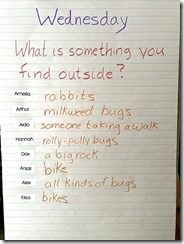 Wednesday
What is something you
find outside?
Amelia rabbits
Arthur milkweed bugs
Aldo someone taking a walk
Hannah rolly-polly bugs
Dax a big rock
Anjali bike
Alex all kinds of bugs
Eliza bikes